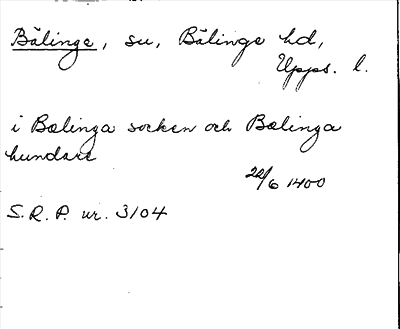 Bälinge, sn, Bälinge hd,
Upps. l.
i Bælinga socken och Bælinga
hundare
22/6 1400
S.R.P. nr. 3104